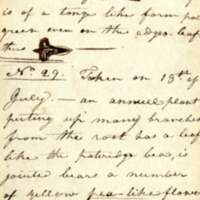 is of a tange like form pa
green even on the edges leaf
thus
No. 29. Taken on 18th of
July. — an annual plant
putting up many branches
from the root has a leaf
like the patridge bea, is
jointed bears a number
of yellow pea-like flower